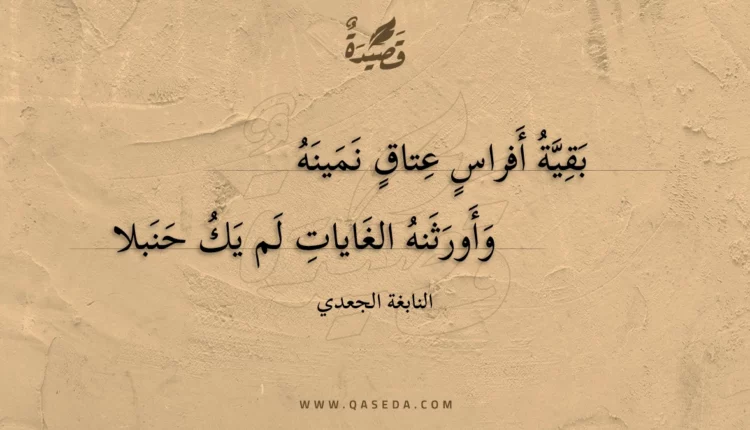 قَصِيدَةٌ
بَقِيَّةُ أَفراسٍ عِتاقٍ نَمَينَهُ
وَأَورَثَنهُ الغَاياتِ لَم يَكُ حَنَبلا
النابغة الجعدي
WWW.QASEDA.COM